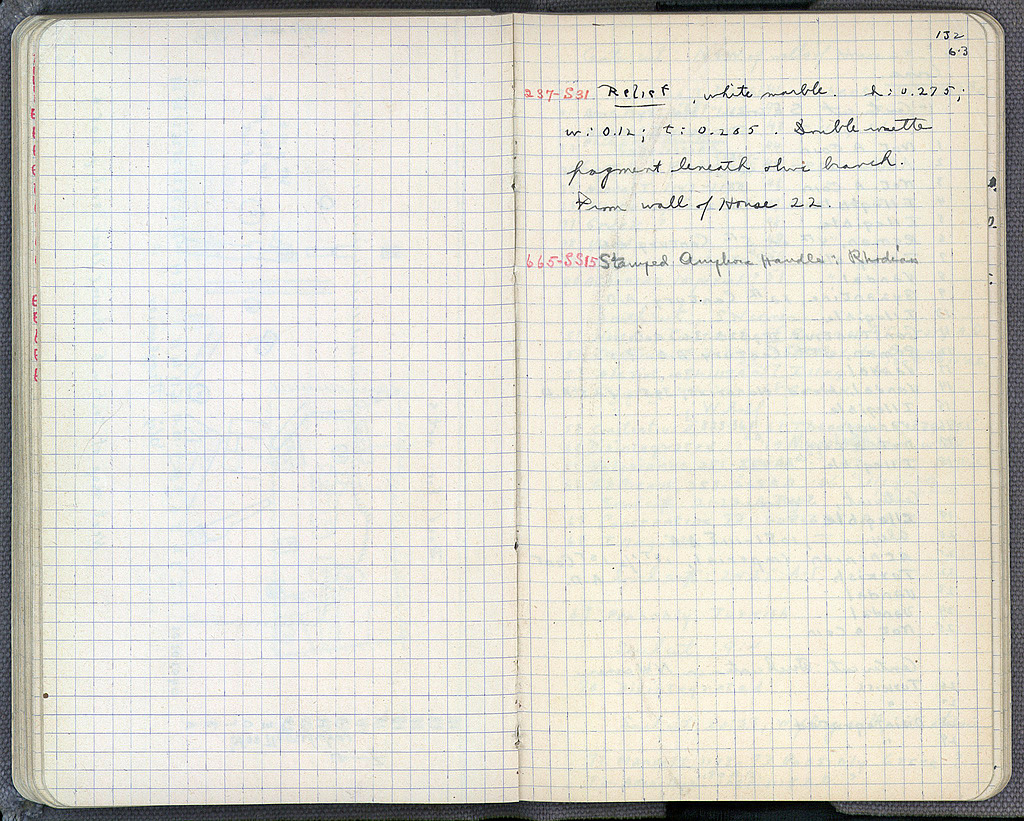 132
63
237-S31 Relief, white marble. h: 0.275;
w: 0.12; t: 0.265. Double rosette
fragment beneath olive branch.
From wall of House 22.
665-SS15 Stamped Amphora Handle: Rhodian